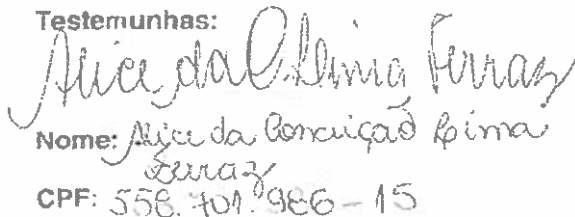 Testemunhas:
Alice da C. Lima Ferraz
Nome: Alice da Conceição Lima
Ferraz
CPF: 558.701.986-15